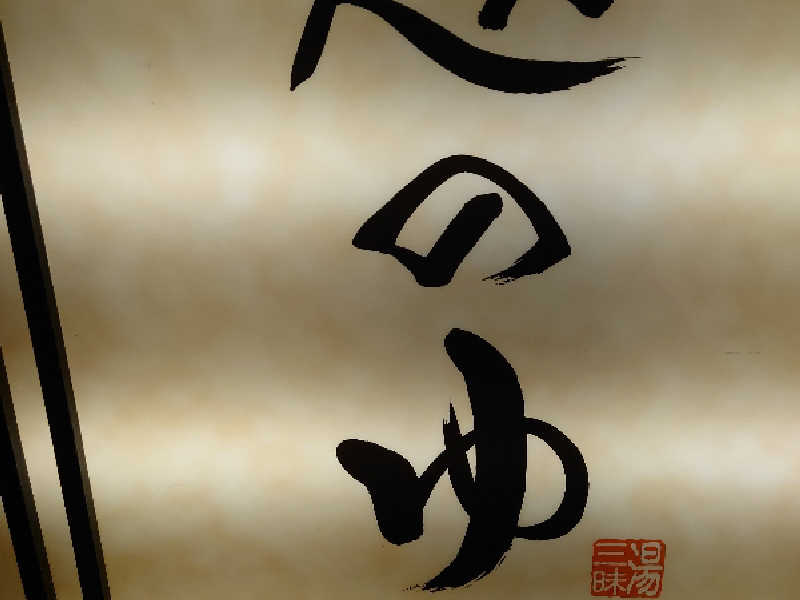 のゆ
湯三昧